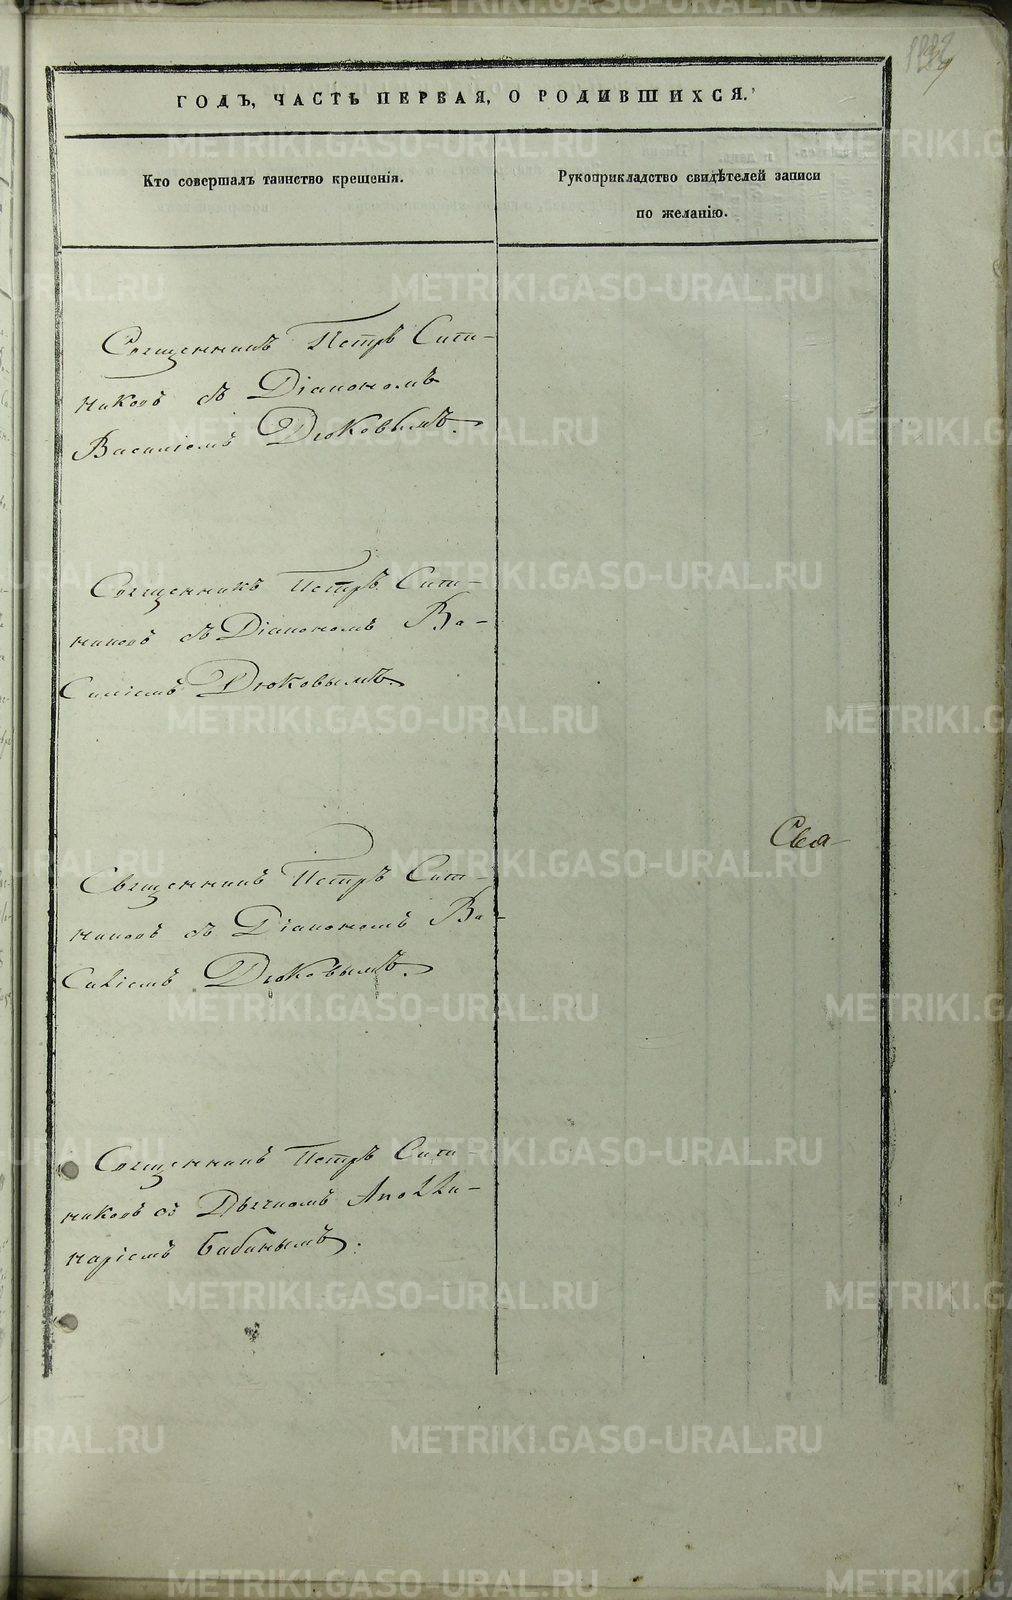 ГОДЪ, ЧАСТЬ ПЕРВАЯ, О РОДИВШИХСЯ.
Кто совершалъ таинство крещенія.
Рукоприкладство свидѣтелей записи
по желанію.
Священникъ Петръ Сит-
никовъ съ Діакономъ
Василіемъ Дюковымъ.
Священникъ Петръ Сит-
никовъ съ Діакономъ Ва-
силіемъ Дюковымъ.
Свя
Священникъ Петръ Сит-
никовъ съ Діакономъ Ва-
силіемъ Дюковымъ.
Священникъ Петръ Сит-
никовъ съ Дьячкомъ Аполли-
наріемъ Бабинымъ.
METRIKI.GASO-URAL.RU